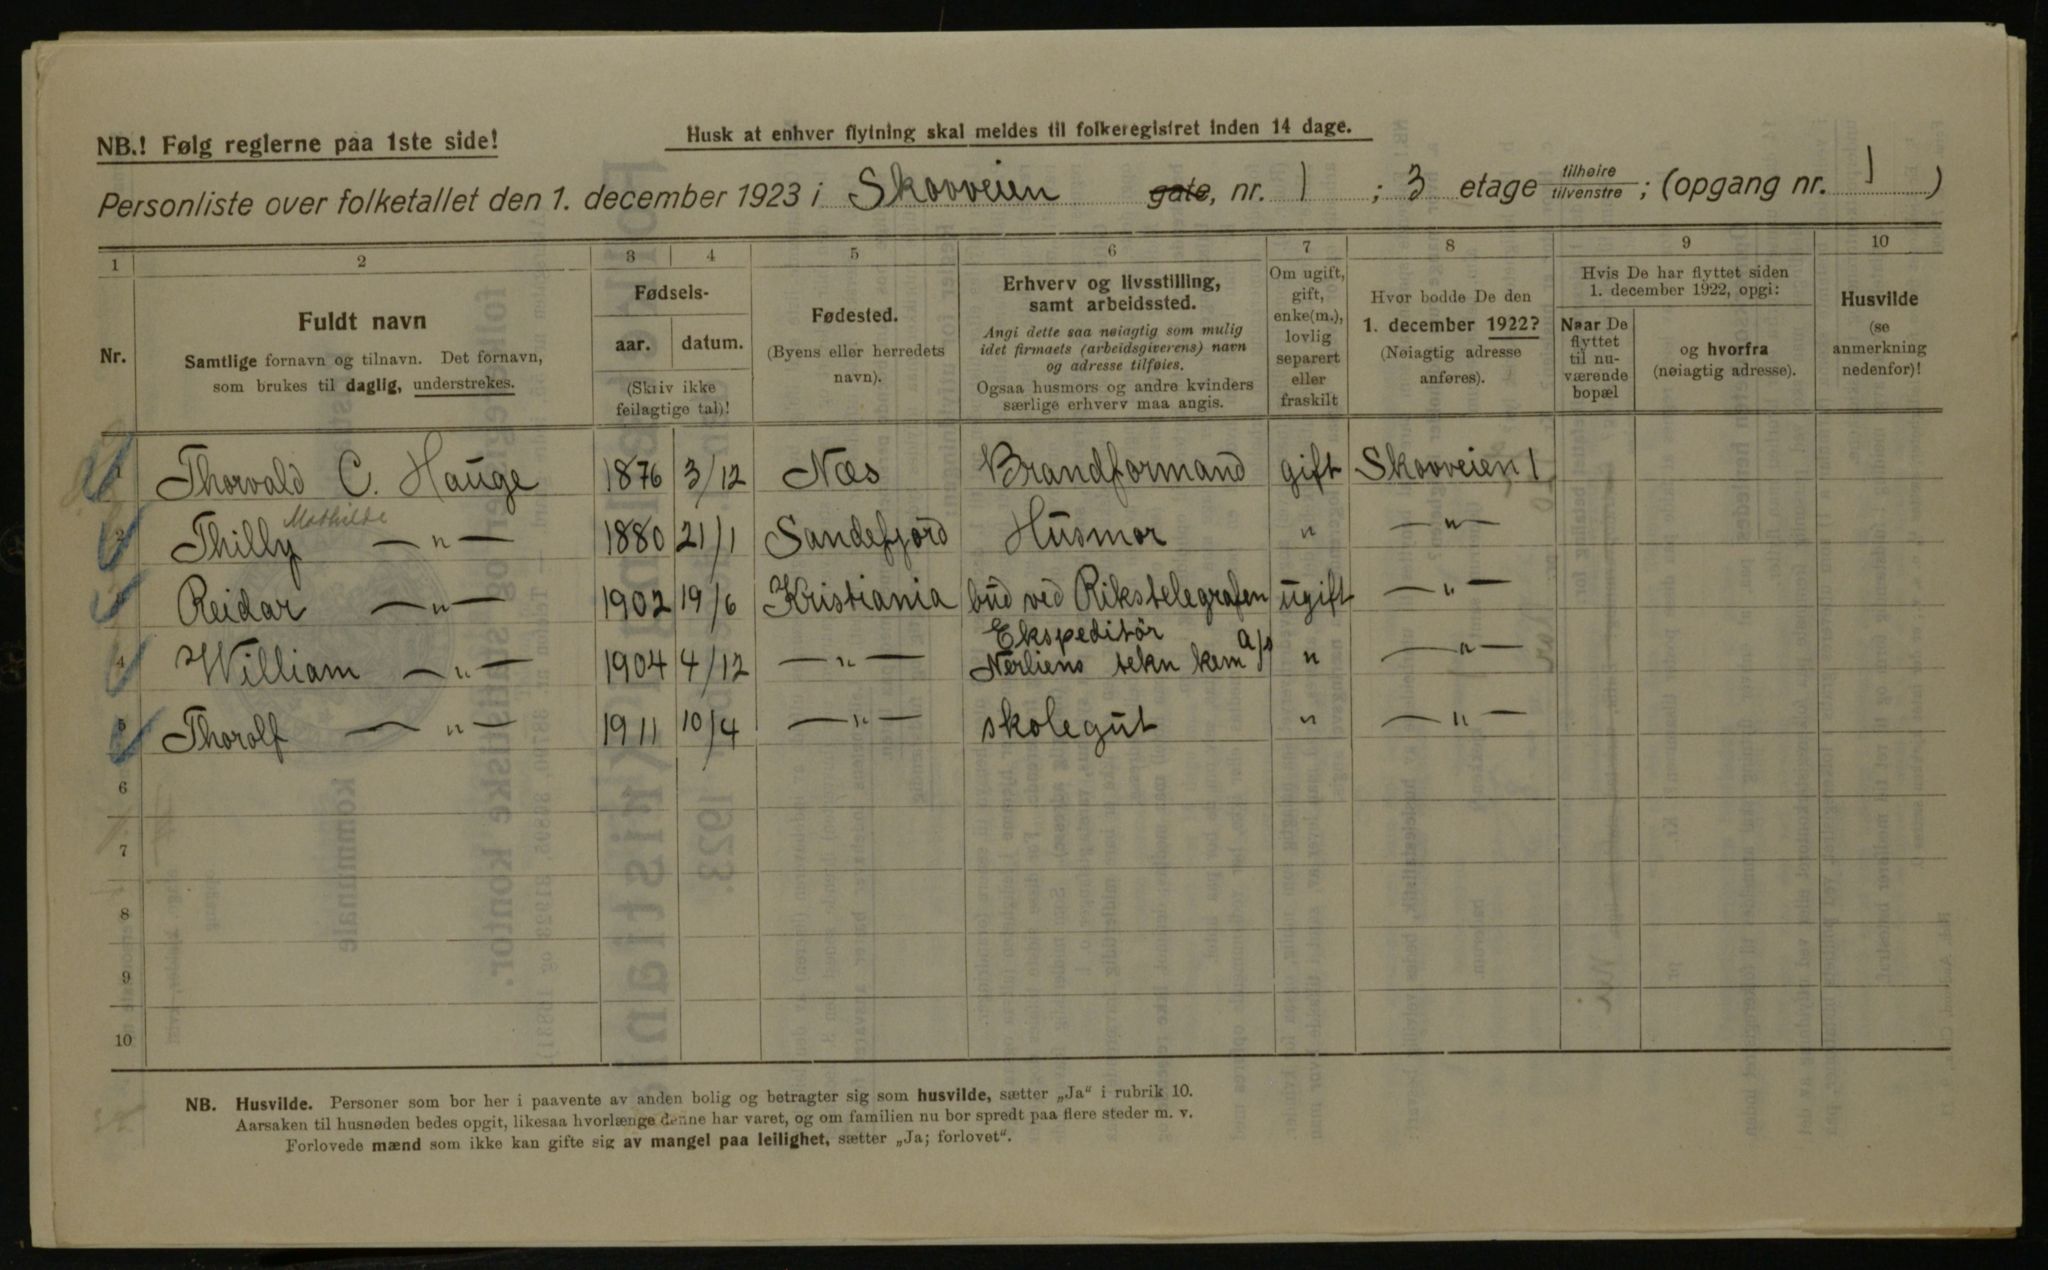 NB.! Følg reglerne paa 1ste side!
Husk at enhver flytning skal meldes til folkeregistret inden 14 dage.
Personliste over folketallet den 1. december 1923 i Skovveien gate, nr. 1 ; 3 etage tilhøire tilvenstre ; (opgang nr. 1 )
1 2 3 4 5 6 7 8 9 10
Nr.
Fuldt navn
Samtlige fornavn og tilnavn. Det fornavn,
som brukes til daglig, understrekes.
Fødsels-
aar. datum.
(Skriv ikke
feilagtige tal)!
Fødested.
(Byens eller herredets
navn).
Erhverv og livsstilling,
samt arbeidssted.
Angi dette saa nøiagtig som mulig
idet firmaets (arbeidsgiverens) navn
og adresse tilføies.
Ogsaa husmors og andre kvinders
særlige erhverv maa angis.
Om ugift,
gift,
enke(m.),
lovlig
separert
eller
fraskilt
Hvor bodde De den
1. december 1922?
(Nøiagtig adresse
anføres).
Hvis De har flyttet siden
1. december 1922, opgi:
Naar De
flyttet
til nu-
værende
bopæl
og hvorfra
(nøiagtig adresse).
Husvilde
(se
anmerkning
nedenfor)!
1 Thorvald C. Hauge 1876 3/12 Næs Brandformand gift Skovveien 1
Mathilde
2 Thilly —"— 1880 21/1 Sandefjord Husmor " —"—
3 Reidar —"— 1902 19/6 Kristiania bud ved Rikstelegrafen ugift —"—
Ekspeditør
4 William —"— 1904 4/12 —"— Nerliens tekn kem A/s " —"—
5 Thorolf —"— 1911 10/4 —"— skolegut " —"—
6
7
8
9
10
NB. Husvilde. Personer som bor her i paavente av anden bolig og betragter sig som husvilde, sætter „Ja“ i rubrik 10.
Aarsaken til husnøden bedes opgit, likesaa hvorlænge denne har varet, og om familien nu bor spredt paa flere steder m. v.
Forlovede mænd som ikke kan gifte sig av mangel paa leilighet, sætter „Ja; forlovet“.